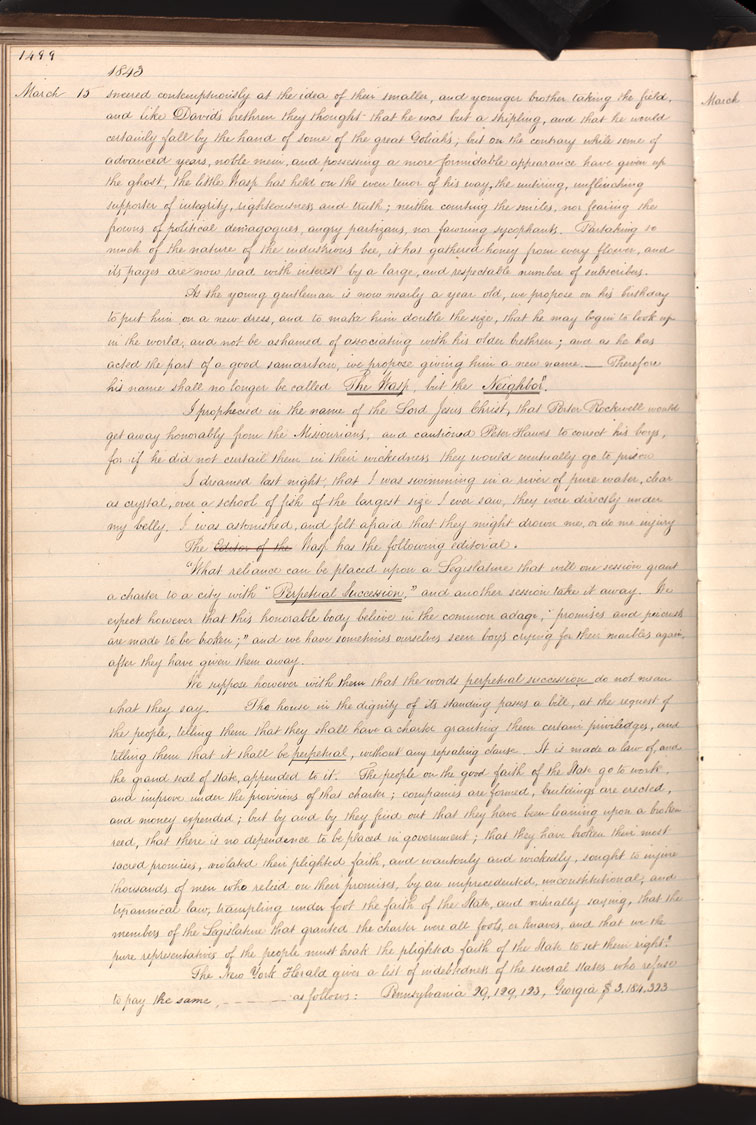 1499
1843
March 15 sneered contemptuously at the idea of their smaller, and younger brother taking the field,
and like David's brethren they thought that he was but a stripling, and that he would
certainly fall by the hand of some of the great Goliah's; but on the contrary while some of
advanced years, noble mein, and possessing a more formidable appearance have given up
the ghost, the little Wasp has held on the even tenor of his way, the untiring, unflinching
supporter of integrity, righteousness and truth; neither courting the smiles, nor fearing the
frowns of political demagogues, angry partizans, nor fawning sycophants. Partaking so
much of the nature of the industrious bee, it has gathered honey from every flower, and
its pages are now read with interest by a large, and respectable number of subscribers.
As the young gentleman is now nearly a year old, we propose on his birthday
to put him on a new dress, and to make him double the size, that he may begin to look up
in the world, and not be ashamed of associating with his older brethren; and as he has
acted the part of a good samaritan, we propose giving him a new name — Therefore
his name shall no longer be called The Wasp, but the Neighbor".
I prophecied in the name of the Lord Jesus Christ, that Porter Rockwell would
get away honorably from the Missourians, and cautioned Peter Hawes to correct his boys,
for if he did not curtail them in their wickedness they would eventually go to prison
I dreamed last night, that I was swimming in a river of pure water, clear
as crystal, over a school of fish of the largest size I ever saw, they were directly under
my belly. I was astonished, and felt afraid that they might drown me, or do me injury
The Editor of the Wasp has the following editorial.
"What reliance can be placed upon a Legislature that will one session grant
a charter to a city with "Perpetual Succession," and another session take it away. We
expect however that this honorable body believe in the common adage, "promises and piecrusts
are made to be broken;" and we have sometimes ourselves seen boys crying for their marbles again,
after they have given them away.
We suppose however with them that the words perpetual succession do not mean
what they say. The house in the dignity of its standing passes a bill, at the request of
the people, telling them that they shall have a charter granting them certain priviledges, and
telling them that it shall be perpetual, without any repealing clause. It is made a law of, and
the grand seal of state, appended to it. The people on the good faith of the State go to work,
and improve under the provisions of that charter; companies are formed, buildings are erected,
and money expended; but by and by they find out that they have been leaning upon a broken
reed, that there is no dependence to be placed in government; that they have broken their most
sacred promises, violated their plighted faith, and wantonly and wickedly, sought to injure
thousands of men who relied on their promises, by an unprecedented, unconstitutional, and
tyrannical law, trampling under foot the faith of the State, and virtually saying, that the
members of the Legislature that granted the charter were all fools, or knaves, and that we the
pure representatives of the people must break the plighted faith of the State to set them right."
The New York Herald gives a list of indebtedness of the several States who refuse
to pay the same, - - - - - as follows: Pennsylvania 29,129,123, Georgia $ 3,184,323
March